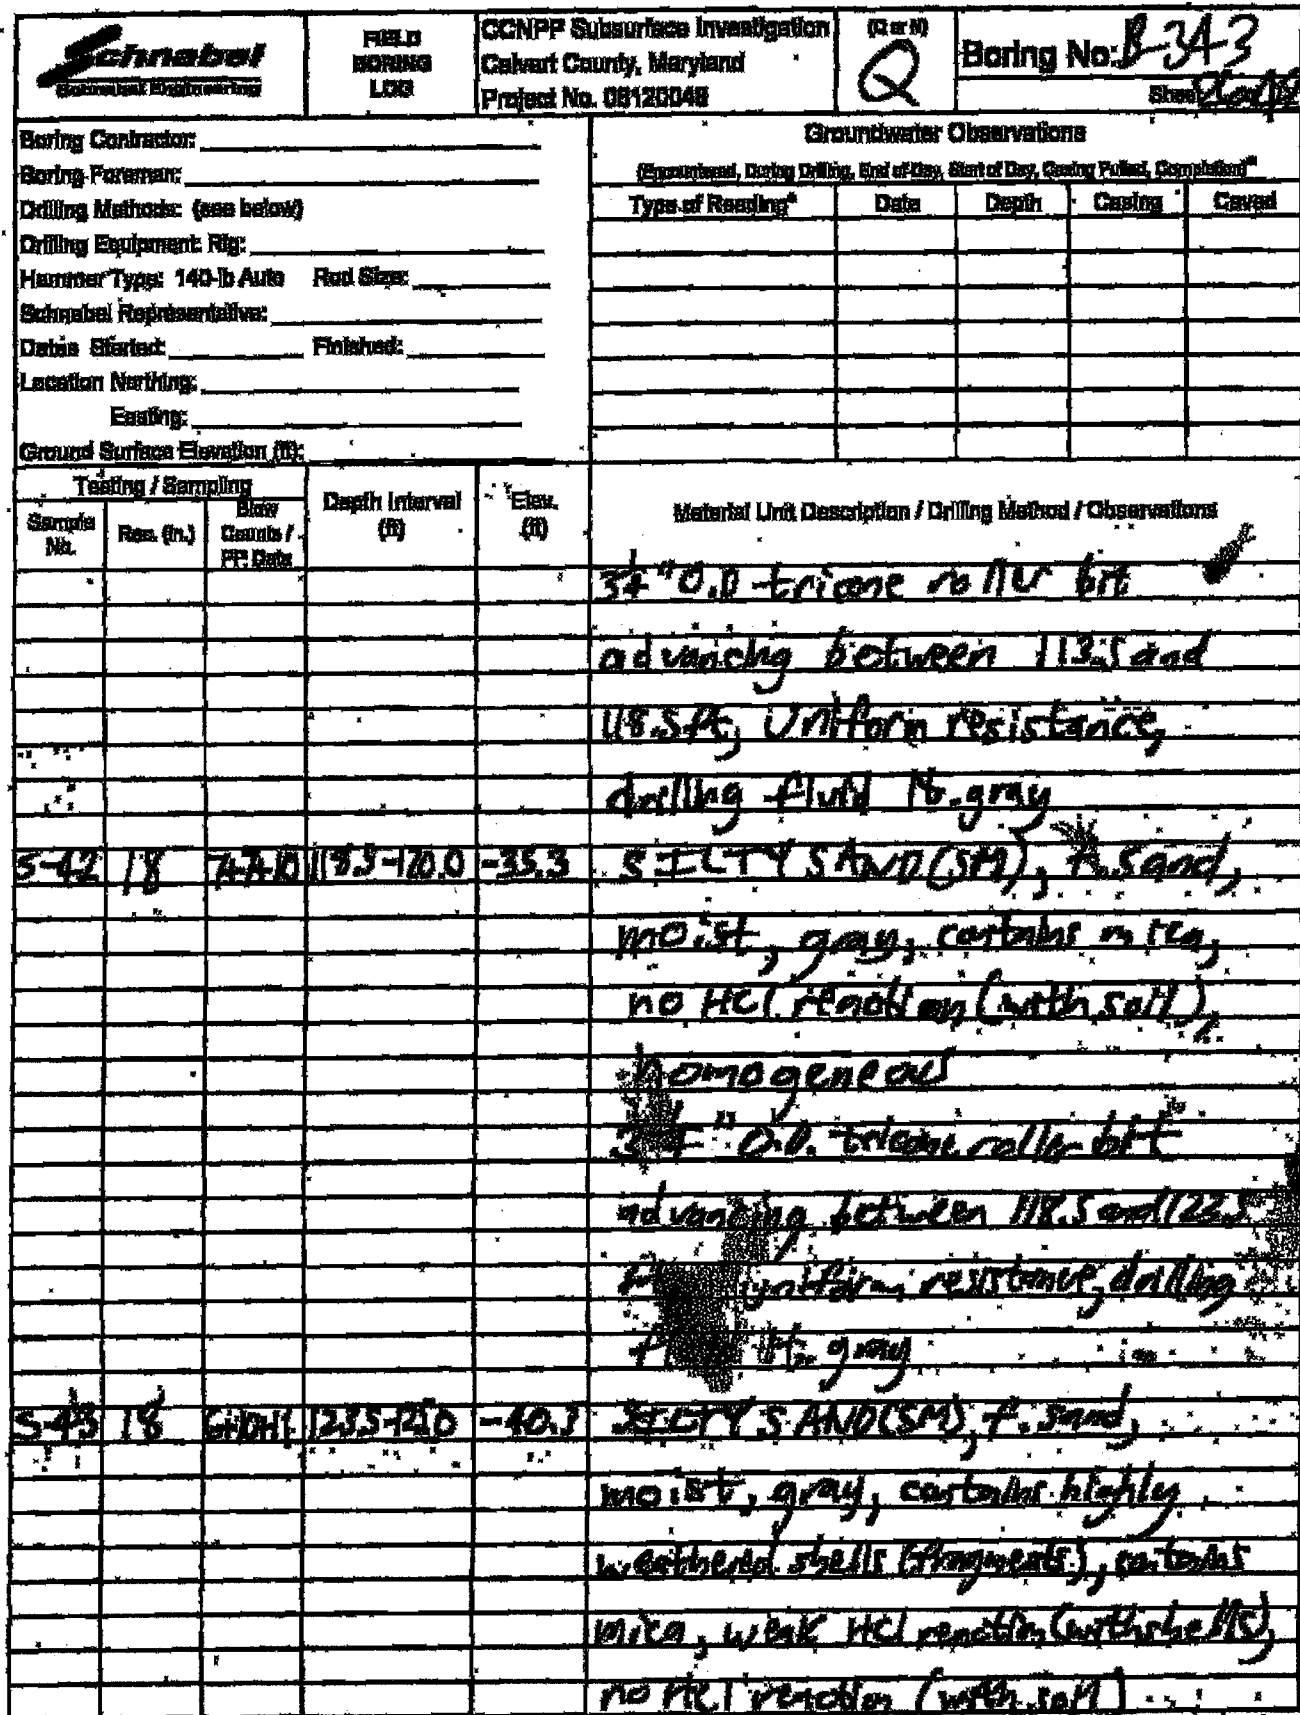 Schnabel
Schnabel Engineering
FIELD
BORING
LOG
CCNPP Subsurface Investigation
Calvert County, Maryland
Project No. 06120048
(Q or N)
Q
Boring No: B-3A-3
Sheet
Boring Contractor:
Boring Foreman:
Drilling Methods: (see below)
Drilling Equipment: Rig:
Hammer Type: 140-lb Auto Rod Size:
Schnabel Representative:
Dates Started: Finished:
Location Northing:
Easting:
Ground Surface Elevation (ft):
Groundwater Observations
(Encountered, During Drilling, End of Day, Start of Day, Casing Pulled, Completion)*
Type of Reading* Date Depth Casing Caved
Testing / Sampling
Sample No. Rec. (in.) Blow Counts / PP. Data Depth Interval (ft) Elev. (ft) Material Unit Description / Drilling Method / Observations
3 1/4" O.D tricone roller bit
advancing between 113.5 and
118.5ft, Uniform resistance,
drilling fluid lt. gray
S-42 18 7-7-10 118.5-120.0 -35.3 SILTY SAND(SM), f. sand,
moist, gray, contains mica,
no HCl reaction (with soil),
homogeneous
3 1/4" O.D. tricone roller bit
advancing between 118.5 and 123.5
uniform resistance, drilling
lt. gray
S-43 18 123.5-125.0 -40.3 SILTY SAND(SM), f. sand,
moist, gray, contains highly
weathered shells (fragments), contains
mica, weak HCl reaction (with shells),
no HCl reaction (with soil)